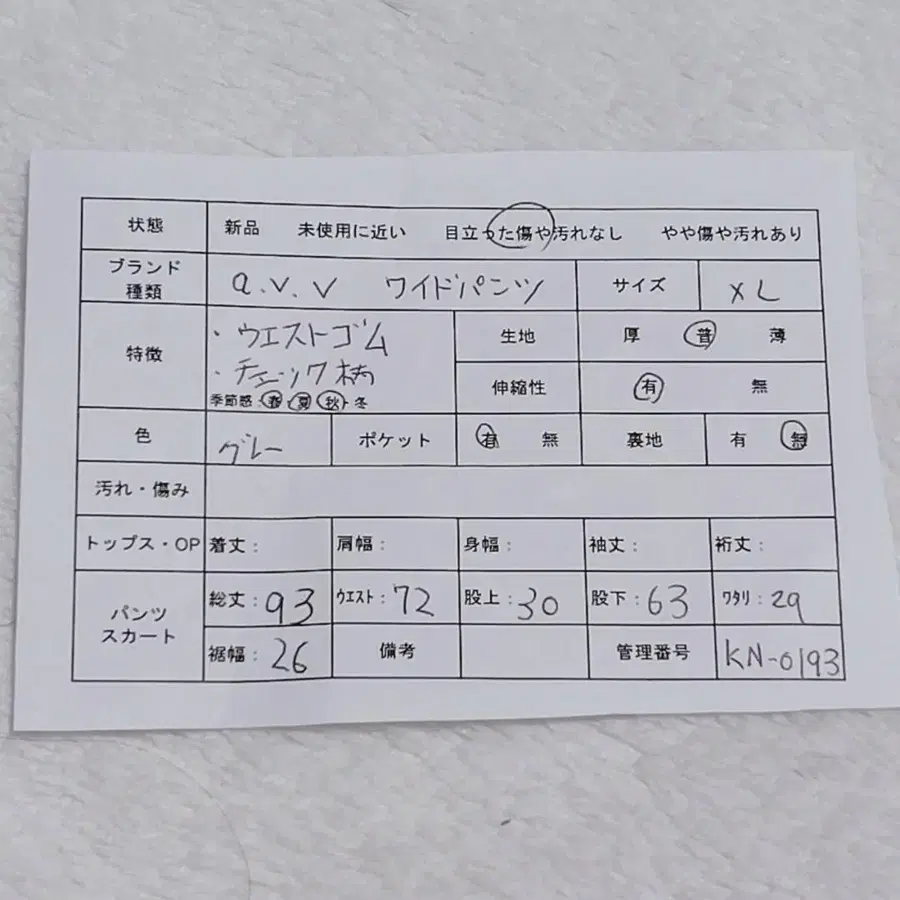 状態 新品 未使用に近い 目立った傷や汚れなし やや傷や汚れあり
ブランド 種類 a.v.v ワイドパンツ サイズ XL
特徴 ・ウエストゴム 生地 厚 普 薄
・チェック柄 伸縮性 有 無
季節感・春・夏・秋・冬
色 グレー ポケット 有 無 裏地 有 無
汚れ・傷み
トップス・OP 着丈: 肩幅: 身幅: 袖丈: 裄丈:
パンツ スカート 総丈:93 ウエスト:72 股上:30 股下:63 ワタリ:29
裾幅:26 備考 管理番号 KN-0193